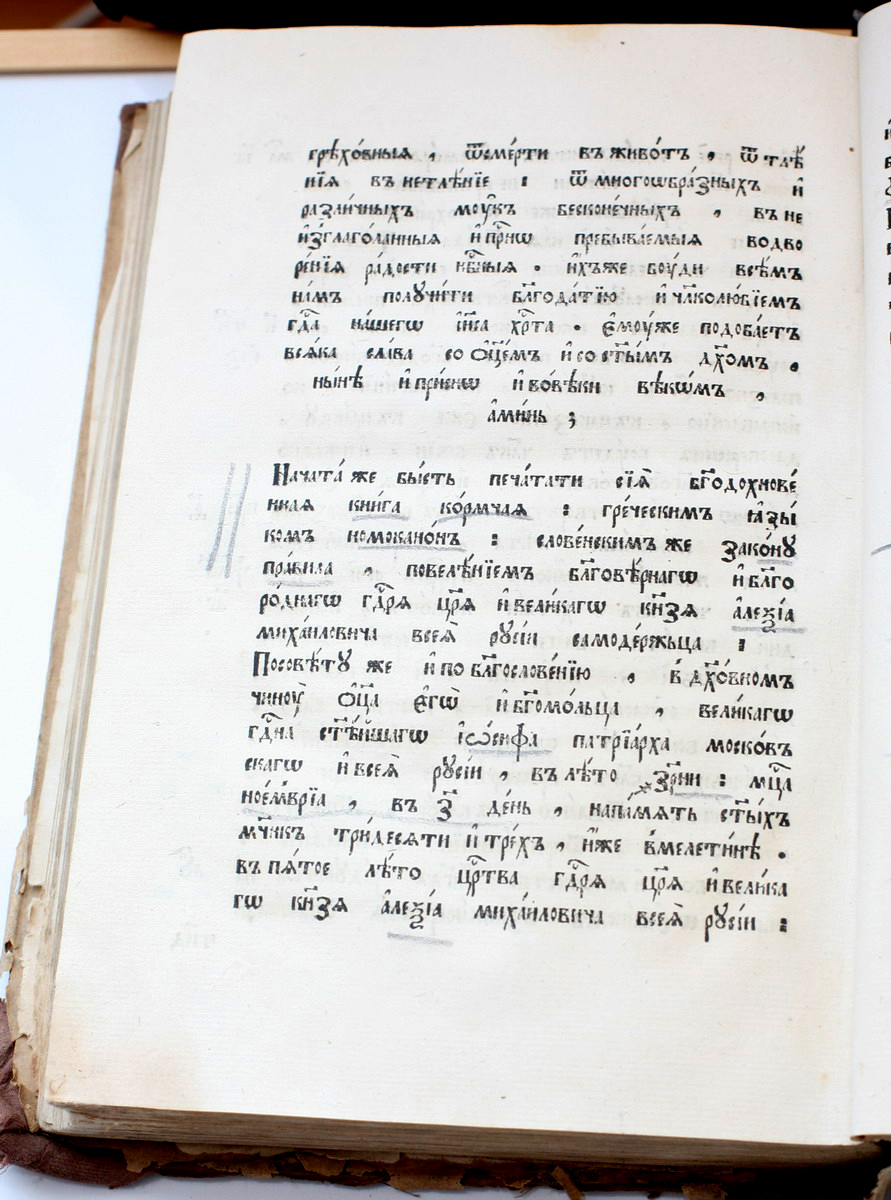 грѣхо́вныѧ , ѿсме́рти въ живо́тъ , ѿ тлѣ́
нїѧ въ нетлѣ́нїе : ѿ многоѡбра́зныхъ и҆
разли́чныхъ моу́къ безконе́чныхъ , въ не
и҆зглаго́ланныѧ и҆ при́снѡ пребыва́емыѧ водво
ре́нїѧ ра́дости нбⷭ҇ныѧ . и҆́хъже бꙋ́ди всѣ́мъ
на́мъ полꙋчи́ти бл҃года́тїю и҆ чл҃колю́бїемъ
гдⷭ҇а на́шегѡ і҆с҃а хрⷭ҇та . є҆моу́же подоба́етъ
всѧ́ка сла́ва со ѻ҆ц҃е́мъ и҆ со ст҃ы́мъ дх҃омъ ,
ны́нѣ и҆ при́снѡ и҆ во вѣ́ки вѣкѡ́мъ ,
а҆ми́нь ;
Начата́ же бы́сть печа́тати сїѧ̀ бг҃одохнове́
ннаѧ кни́га ко́рмчаѧ : гре́ческимъ ꙗ҆зы́
комъ номокано́нъ : слове́нскимъ же зако́нꙋ
пра́вила , повелѣ́нїемъ бл҃говѣ́рнагѡ и҆ бл҃го
ро́днагѡ гдⷭ҇рѧ цр҃ѧ̀ и҆ вели́кагѡ кн҃зѧ а҆леѯі́а
миха́иловича всеѧ̀ рꙋсі́и самоде́ржьца :
Посовѣ́тꙋ же и҆ по бл҃гослове́нїю , в дх҃о́вномъ
чиноу̀ ѻ҆ц҃а̀ є҆гѡ̀ и҆ бг҃омо́льца , вели́кагѡ
гдⷭ҇на ст҃ѣ́йшагѡ і҆ѡ́сифа патрїа́рха моско́въ
скагѡ и҆ всеѧ̀ рꙋсі́и , въ лѣ́то зрни : мцⷭ҇а
ное́мврїа , въ з҃ де́нь , на па́мѧть ст҃ы́хъ
мч҃нкъ три́десѧти и҆ тре́хъ , и҆́же в мелети́нѣ .
въ пѧ́тое лѣ́то црⷭ҇тва гдⷭ҇рѧ цр҃ѧ̀ и҆ вели́ка
гѡ кн҃зѧ а҆леѯі́а миха́иловича всеѧ̀ рꙋсі́и :